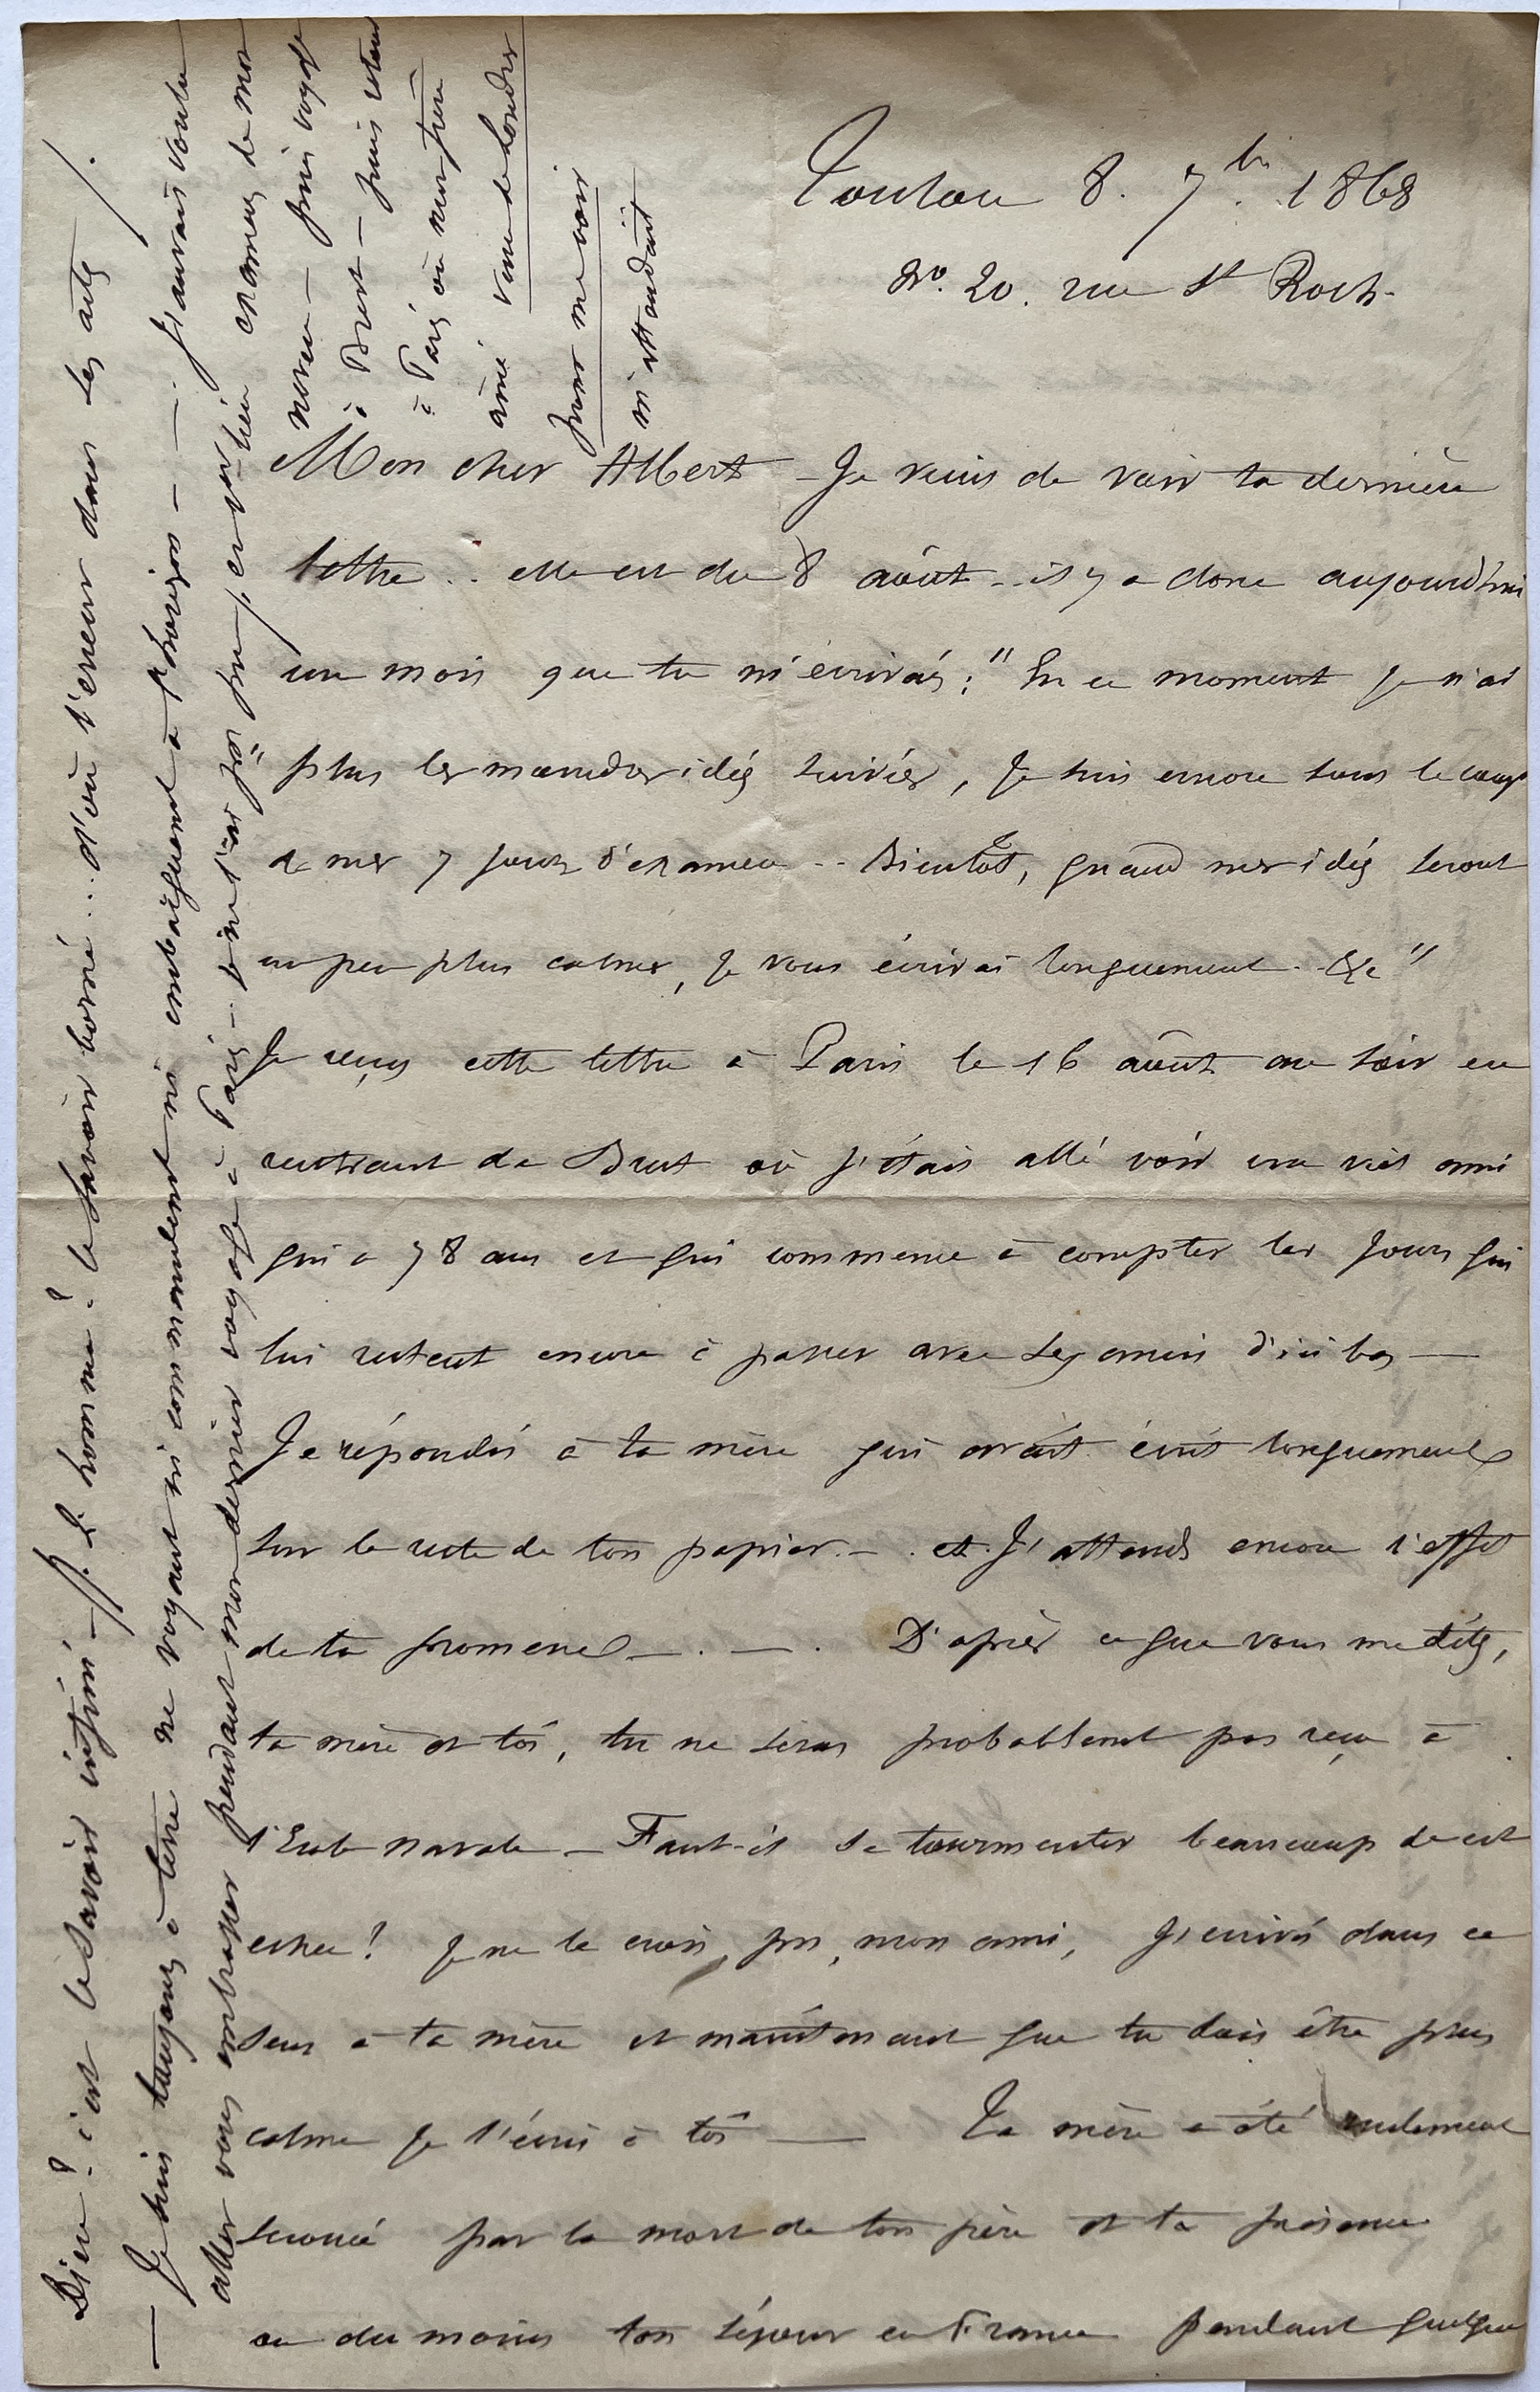 Toulon 8. 7bre. 1868
No. 20. rue St Roch.
Mon cher Albert – Je viens de voir ta dernière
lettre .. elle est du 8 août – il y a donc aujourd'hui
un mois que tu m'écrivais : "En ce moment je n'ai
plus les moindres idées suivies, je suis encore sous le coup
de mes 7 jours d'examen -- Bientôt, quand mes idées seront
un peu plus calmes, je vous écrirai longuement. &c"
Je reçus cette lettre à Paris le 16 août au soir en
rentrant de Brest où j'étais allé voir un viel ami
qui a 78 ans et qui commence à compter les jours qui
lui restent encore à passer avec les amis d'ici bas —
Je répondis à ta mère qui avait écrit longuement
sur le reste de ton papier. – . et j'attends encore l'effet
de ta promesse — . — . D'après ce que vous me dites,
ta mère et toi, tu ne seras probablement pas reçu à
l'Ecole navale – Faut-il se tourmenter beaucoup de cet
echec ? je ne le crois pas, mon ami, j'écrivis dans ce
sens à ta mère et maintenant que tu dois être plus
calme je l'écris à toi — Ta mère a été rudement
secouée par la mort de ton père et ta présence
ou du moins ton séjour en France pendant quelque
Dieu ? c'est le savoir infini — . L'homme ? le savoir borné ... d'où l'erreur dans les arts /.
— Je suis toujours à terre ne voyant ni commandement ni embarquement à l'horizon — — . J'aurais voulu
aller vous embrasser pendant mon dernier voyage à Paris – je ne l'ai pas pu, en examens de mon
neveu — puis voyage
à Brest — puis retour
à Paris où mon frère
aîné venu de Londres
pour me voir
m'attendait